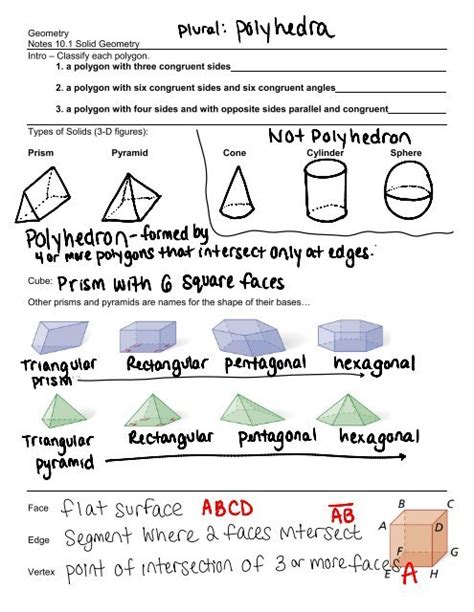 Plural: polyhedra
Geometry
Notes 10.1 Solid Geometry
Intro – Classify each polygon.
1. a polygon with three congruent sides
2. a polygon with six congruent sides and six congruent angles
3. a polygon with four sides and with opposite sides parallel and congruent
Types of Solids (3-D figures):
Not Polyhedron
Prism Pyramid Cone Cylinder Sphere
Polyhedron - formed by
4 or more polygons that intersect only at edges.
Cube: Prism with 6 square faces
Other prisms and pyramids are names for the shape of their bases…
Triangular Rectangular pentagonal hexagonal
prism
Triangular Rectangular pentagonal hexagonal
pyramid
Face flat surface ABCD AB
Edge Segment where 2 faces intersect
Vertex point of intersection of 3 or more faces A
B C
A D
F G
E H